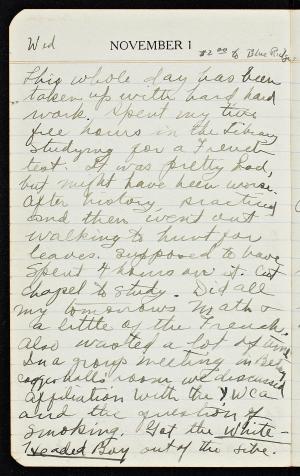 Wed
NOVEMBER 1
$2.00 to Blue Ridge
This whole day has been
taken up with hard hard
work. Spent my two
free hours in the Library
studying for a French
test. It was pretty bad,
but might have been worse.
After history, practiced
and then went out
walking to hunt for
leaves. Supposed to have
spent 4 hours on it. Cut
chapel to study. Did all
my tomorrows Math &
a little of the French.
Also wasted a lot of time
In a group meeting in
hall's room we discussed
Affiliation with the YWCA
and the question of
smoking. Got the White-
Headed Boy out of the libe.